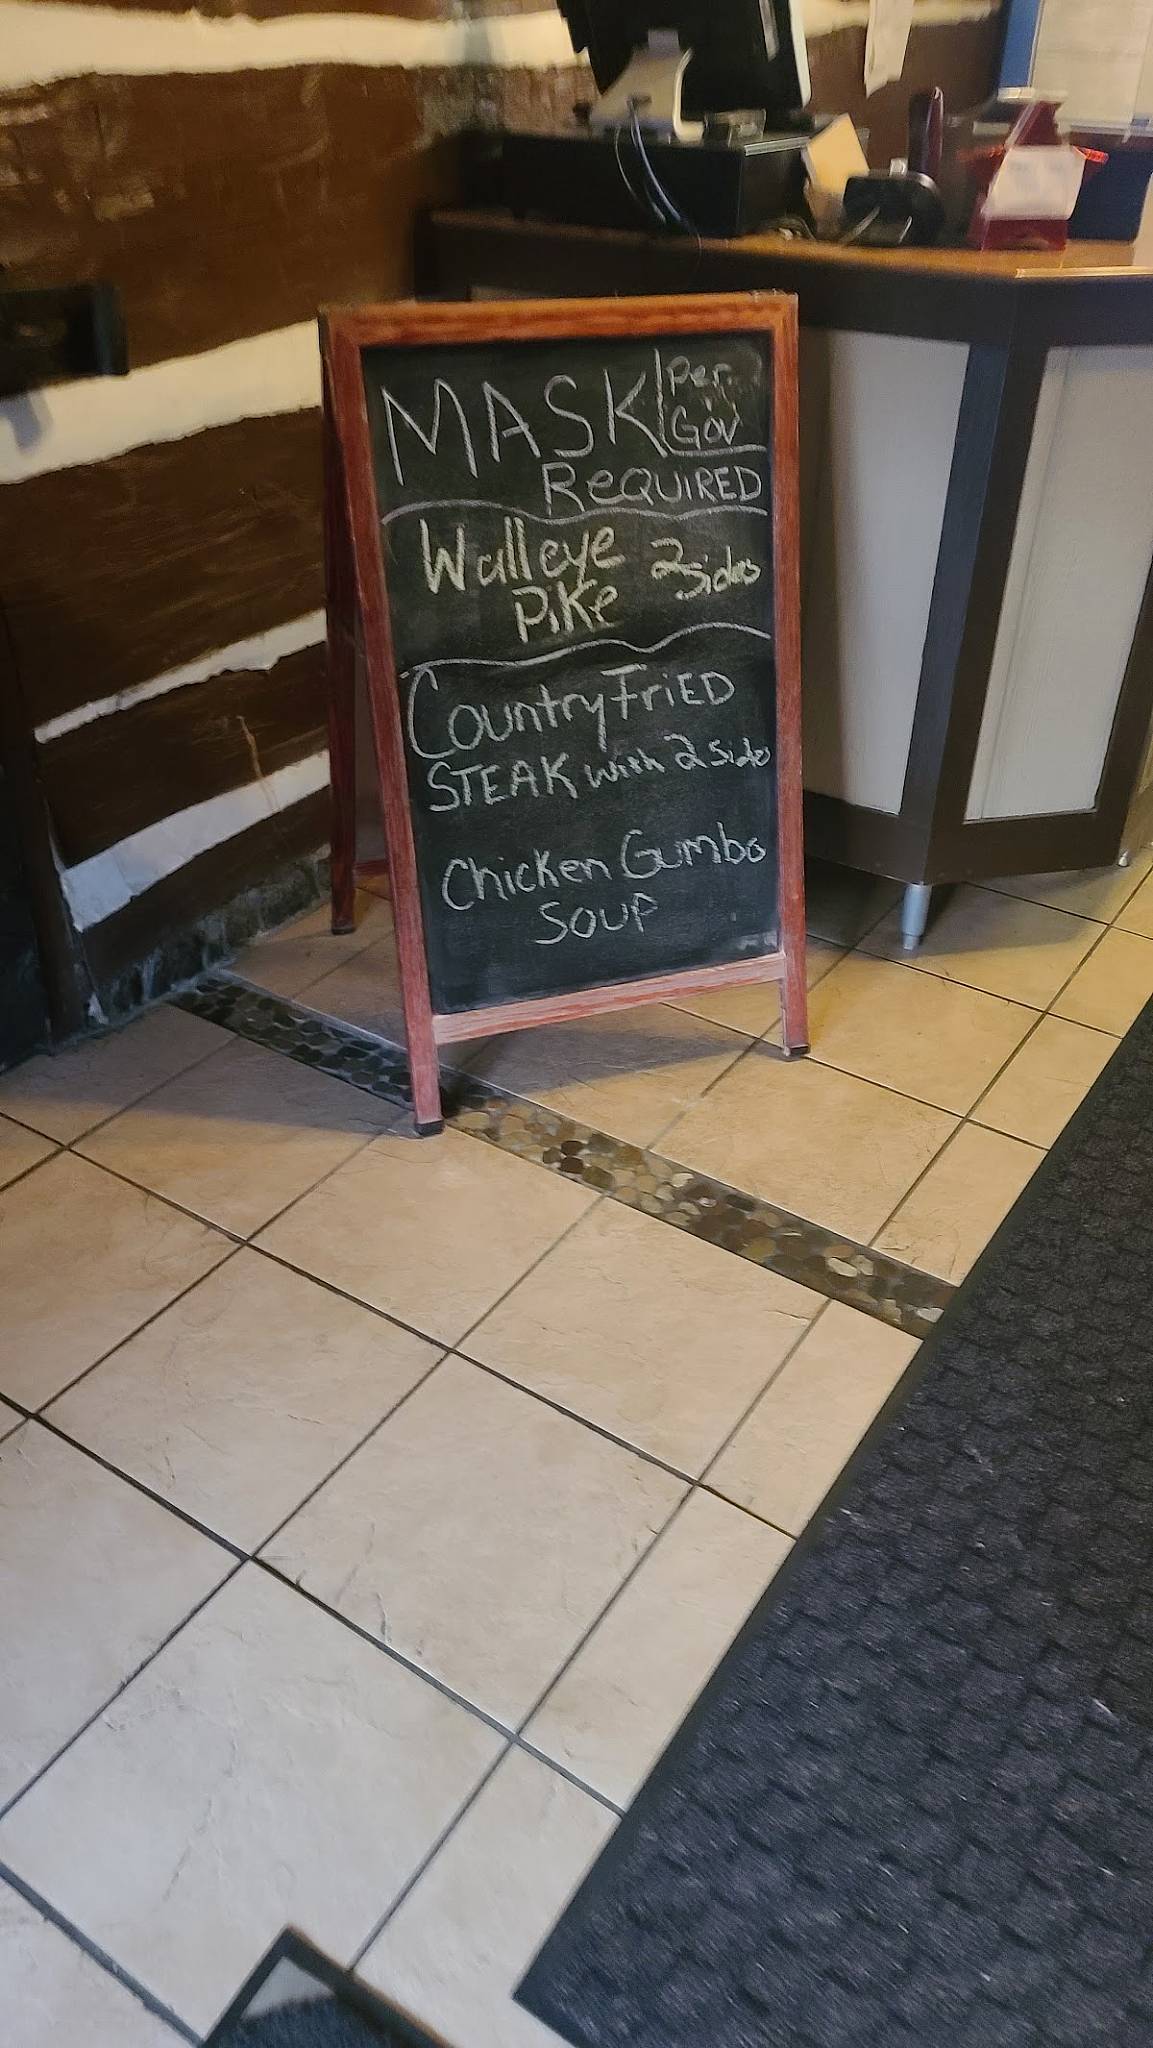 MASK Per
Gov
ReQUIRED
Walleye 2 Sides
PiKe
Country FriED
STEAK with 2 sides
Chicken Gumbo
SOUP